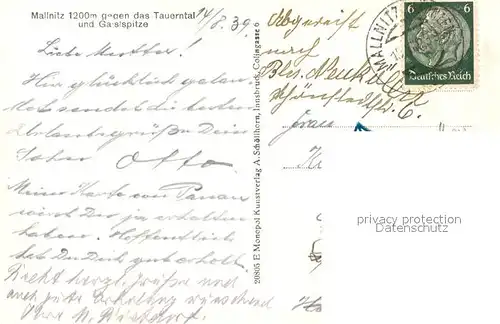 Mallnitz 1200m gegen das Tauerntal
und Gaislspitze
14/8.39
Liebe Mutter!
Hier glücklich gelan-
det sendet die besten
Urlaubsgrüße Dein
Sohn Otto
Meine Karte von
wirst Du ja erhalten
haben. Hoffentlich
hast Du Dich gut erholt.
Recht herzl. Grüße und
auch gute Erholung wünschend
20805 E Monopol Kunstverlag A. Schöllhorn, Innsbruck, Colingasse 6
Abgereist
nach
Bln. Neukölln
6.
Frau
MALLNITZ
6 6
Deutsches Reich
privacy protection
watermark